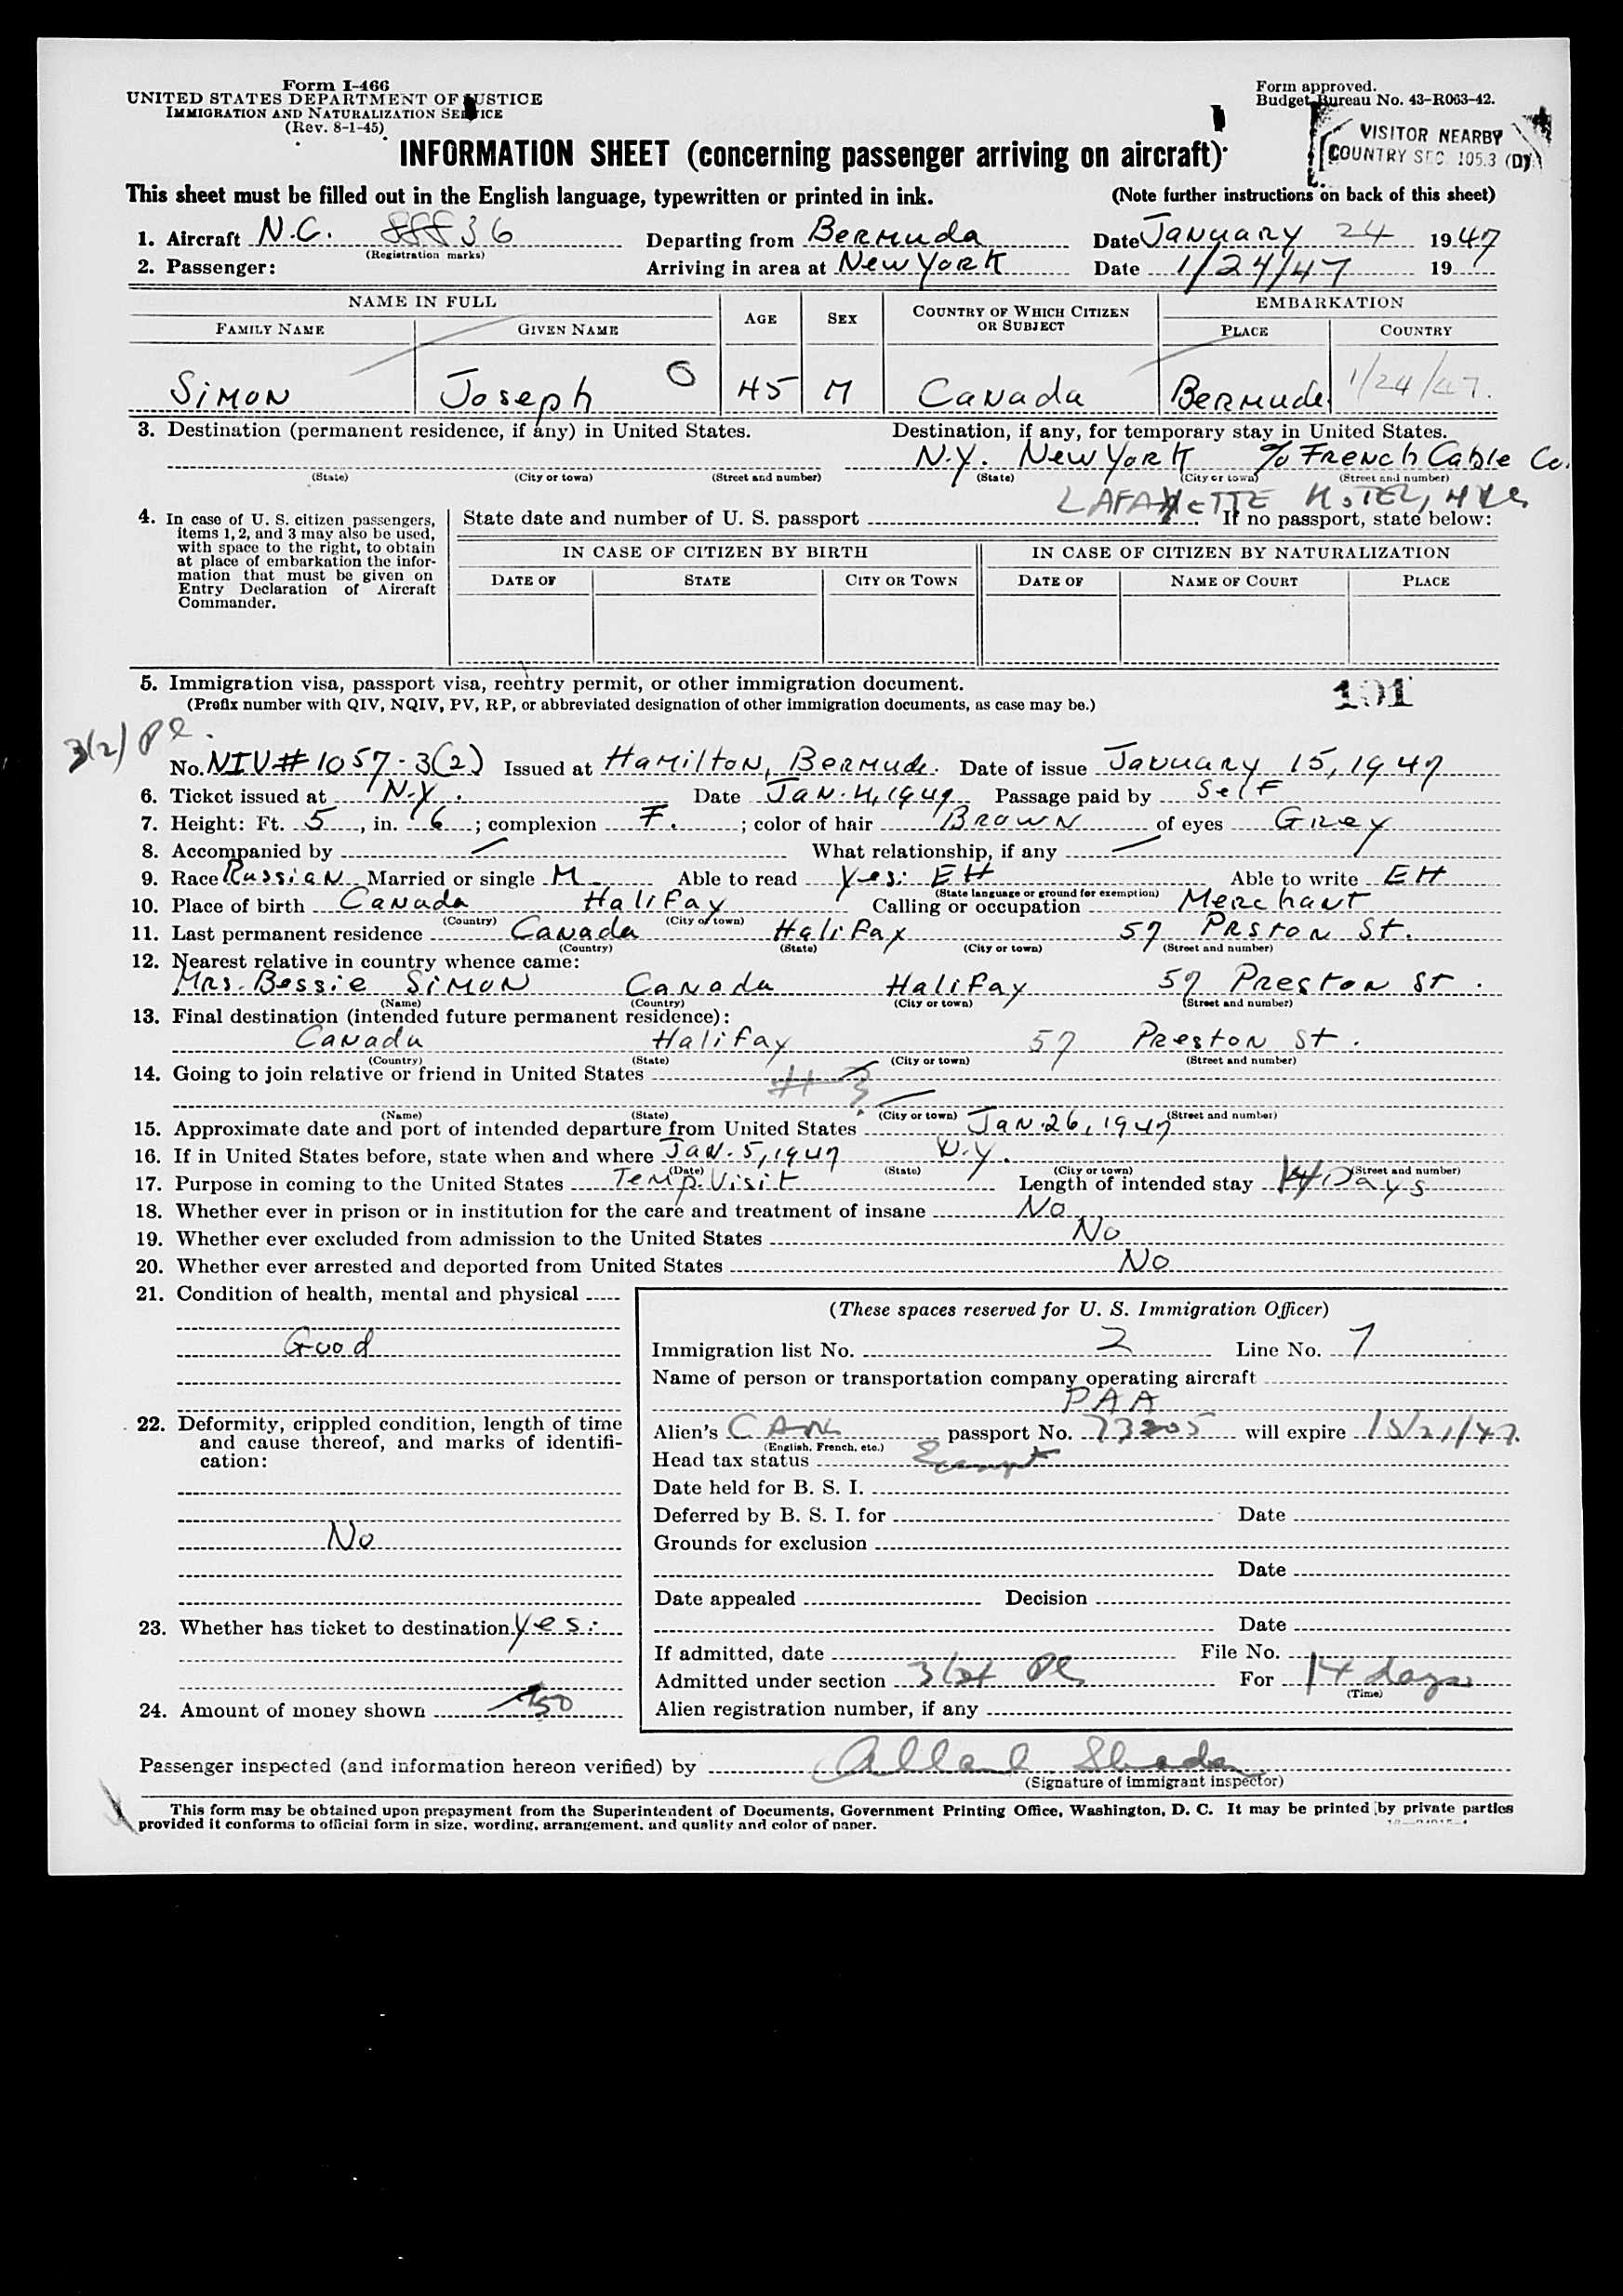 Form I-466
UNITED STATES DEPARTMENT OF JUSTICE
IMMIGRATION AND NATURALIZATION SERVICE
(Rev. 8-1-45)
Form approved.
Budget Bureau No. 43-R063-42.
VISITOR NEARBY
COUNTRY SEC 105.3 (D)
INFORMATION SHEET (concerning passenger arriving on aircraft)
This sheet must be filled out in the English language, typewritten or printed in ink. (Note further instructions on back of this sheet)
1. Aircraft N.C. 88836 Departing from Bermuda Date January 24 1947
(Registration marks)
2. Passenger: Arriving in area at New York Date 1/24/47 19
NAME IN FULL AGE SEX COUNTRY OF WHICH CITIZEN OR SUBJECT EMBARKATION
FAMILY NAME GIVEN NAME PLACE COUNTRY
Simon Joseph O 45 M Canada Bermuda 1/24/47.
3. Destination (permanent residence, if any) in United States. Destination, if any, for temporary stay in United States.
N.Y. New York % French Cable Co.
(State) (City or town) (Street and number) (State) (City or town) (Street and number)
LAFAYETTE HOTEL,
4. In case of U. S. citizen passengers, items 1, 2, and 3 may also be used, with space to the right, to obtain at place of embarkation the information that must be given on Entry Declaration of Aircraft Commander.
State date and number of U. S. passport If no passport, state below:
IN CASE OF CITIZEN BY BIRTH IN CASE OF CITIZEN BY NATURALIZATION
DATE OF STATE CITY OR TOWN DATE OF NAME OF COURT PLACE
5. Immigration visa, passport visa, reentry permit, or other immigration document. 101
(Prefix number with QIV, NQIV, PV, RP, or abbreviated designation of other immigration documents, as case may be.)
3(2) Pl.
No. NIV# 1057-3(2) Issued at Hamilton, Bermuda. Date of issue January 15, 1947
6. Ticket issued at N.Y. Date Jan. 4, 1947 Passage paid by Self
7. Height: Ft. 5, in. 6; complexion F.; color of hair Brown of eyes Grey
8. Accompanied by — What relationship, if any —
9. Race Russian Married or single M Able to read Yes: EH Able to write EH
(State language or ground for exemption)
10. Place of birth Canada Halifax Calling or occupation Merchant
(Country) (City or town)
11. Last permanent residence Canada Halifax 57 Preston St.
(Country) (State) (City or town) (Street and number)
12. Nearest relative in country whence came:
Mrs. Bessie Simon Canada Halifax 57 Preston St.
(Name) (Country) (City or town) (Street and number)
13. Final destination (intended future permanent residence):
Canada Halifax 57 Preston St.
(Country) (State) (City or town) (Street and number)
14. Going to join relative or friend in United States —
(Name) (State) (City or town) (Street and number)
15. Approximate date and port of intended departure from United States Jan. 26, 1947
16. If in United States before, state when and where Jan. 5, 1947 N.Y.
(Date) (State) (City or town) (Street and number)
17. Purpose in coming to the United States Temp. Visit Length of intended stay 14 Days
18. Whether ever in prison or in institution for the care and treatment of insane No
19. Whether ever excluded from admission to the United States No
20. Whether ever arrested and deported from United States No
21. Condition of health, mental and physical
Good
22. Deformity, crippled condition, length of time and cause thereof, and marks of identification:
No
23. Whether has ticket to destination Yes:
24. Amount of money shown 150
(These spaces reserved for U. S. Immigration Officer)
Immigration list No. 2 Line No. 7
Name of person or transportation company operating aircraft
PAA
Alien's CAN passport No. 73205 will expire
(English, French, etc.)
Head tax status Exempt
Date held for B. S. I.
Deferred by B. S. I. for Date
Grounds for exclusion
Date
Date appealed Decision
Date
If admitted, date File No.
Admitted under section 3(2) Pl For 14 days
(Time)
Alien registration number, if any
Passenger inspected (and information hereon verified) by
(Signature of immigrant inspector)
This form may be obtained upon prepayment from the Superintendent of Documents, Government Printing Office, Washington, D. C. It may be printed by private parties
provided it conforms to official form in size, wording, arrangement, and quality and color of paper.